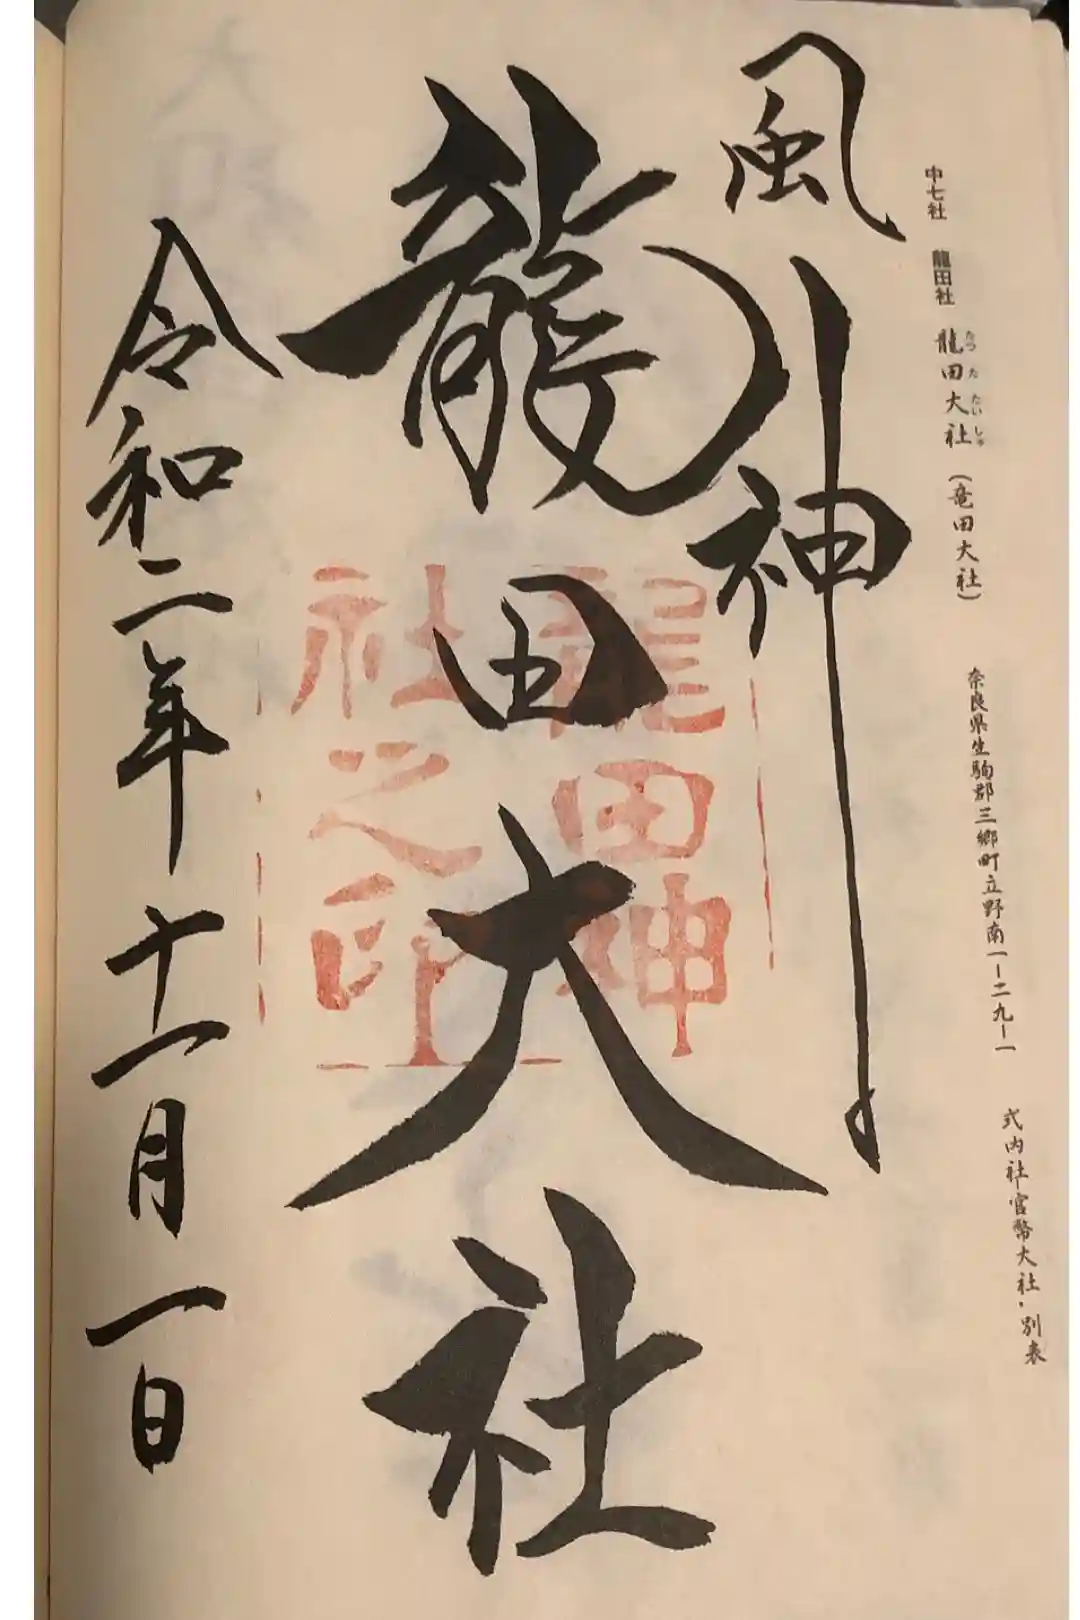 中七社 龍田社 龍田大社 (竜田大社) 奈良県生駒郡三郷町立野南一ー二九ー一 式内社官幣大社・別表
たつ た たいしゃ
風神
龍田大社
龍田神
社之印
令和二年十一月一日